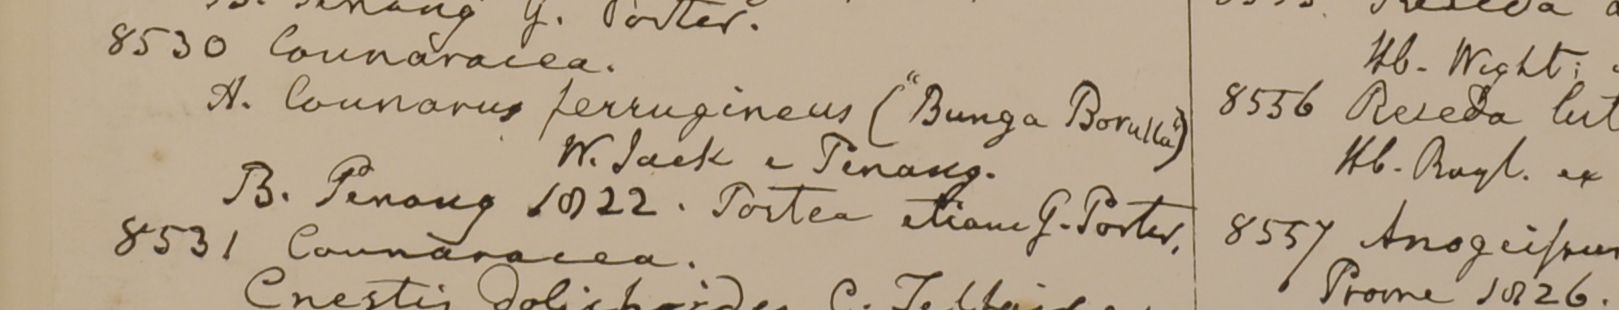 B. Penang G. Porter.
8530 Connaracea.
A. Connarus ferrugineus ("Bunga Borulla")
W. Jack e Penang.
B. Penang 1822. Postea etiam G. Porter.
8531 Connaracea.
Cnestis dolichoides C. Telfair
Reseda
Hb. Wight;
8556 Reseda lut
Hb. Royl. ex
8557 Anogeissus
Prome 1826.